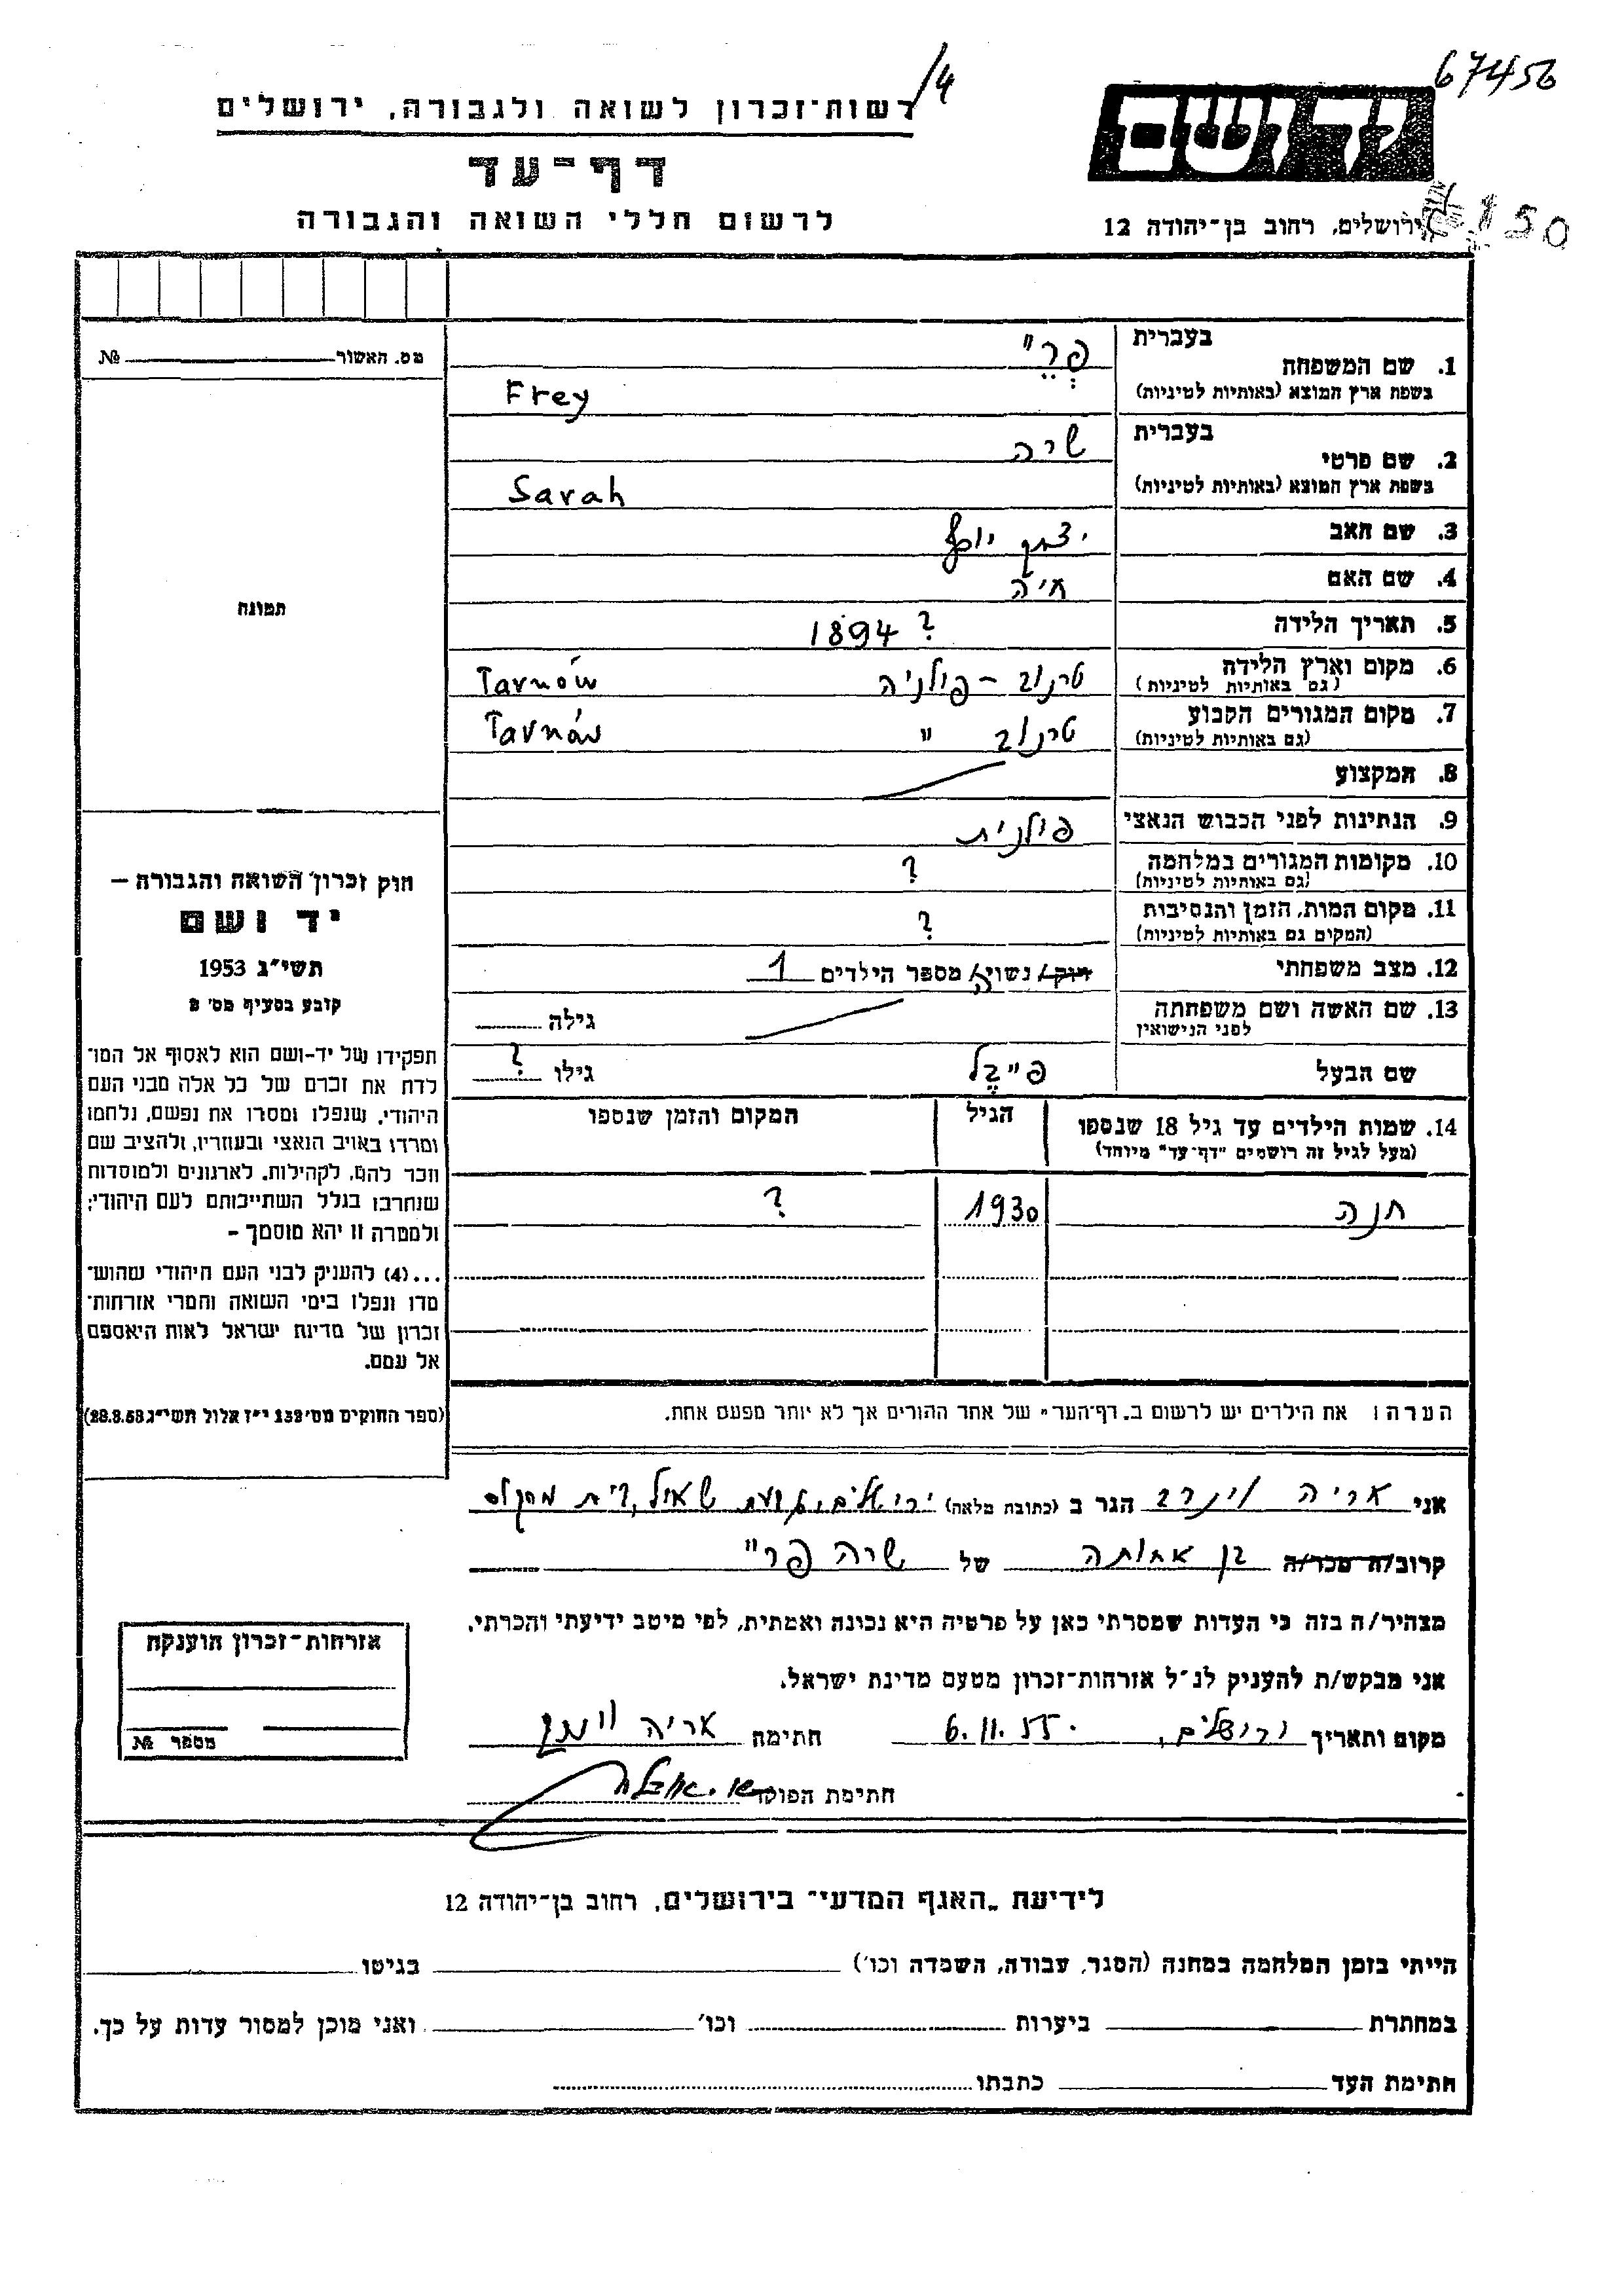 67456
14
רשות־זכרון לשואה ולגבורה, ירושלים
יד ושם
דף־עד
לרשום חללי השואה והגבורה
ירושלים, רחוב בן־יהודה 12
150
מס. האשור №
בעברית
1. שם המשפחה
פְרֵיי
בשפת ארץ המוצא (באותיות לטיניות)
Frey
בעברית
2. שם פרטי
שרה
בשפת ארץ המוצא (באותיות לטיניות)
Sarah
3. שם האב יצחק יוסף
4. שם האם חיה
5. תאריך הלידה ? 1894
6. מקום וארץ הלידה טרנוב – פולניה Tarnów
(גם באותיות לטיניות)
7. מקום המגורים הקבוע טרנוב " Tarnów
(גם באותיות לטיניות)
8. המקצוע
9. הנתינות לפני הכבוש הנאצי פולנית
10. מקומות המגורים במלחמה ?
(גם באותיות לטיניות)
11. מקום המות, הזמן והנסיבות ?
(המקום גם באותיות לטיניות)
12. מצב משפחתי רווק/ נשוי/ה מספר הילדים 1
13. שם האשה ושם משפחתה גילה
לפני הנישואין
שם הבעל פייבל גילו ?
14. שמות הילדים עד גיל 18 שנספו הגיל המקום והזמן שנספו
(מעל לגיל זה רושמים "דף־עד" מיוחד)
חנה 1930 ?
הערה: את הילדים יש לרשום ב„דף־העד" של אחד ההורים אך לא יותר מפעם אחת.
תמונה
חוק זכרון השואה והגבורה —
יד ושם
תשי״ג 1953
קובע בסעיף מס׳ 2
תפקידו של יד־ושם הוא לאסוף אל המו־
לדת את זכרם של כל אלה מבני העם
היהודי, שנפלו ומסרו את נפשם, נלחמו
ומרדו באויב הנאצי ובעוזריו, ולהציב שם
וזכר להם, לקהילות, לארגונים ולמוסדות
שנחרבו בגלל השתייכותם לעם היהודי;
ולמטרה זו יהא מוסמך –
...(4) להעניק לבני העם היהודי שהוש־
מדו ונפלו בימי השואה והמרי אזרחות־
זכרון של מדינת ישראל לאות היאספם
אל עמם.
(ספר החוקים מס׳ 132 י״ז אלול תשי״ג 28.8.53)
אני אריה הגר ב (כתובת מלאה) ירושלים, גבעת שאול,
קרוב/ה מכר/ה בן אחותה של שרה פריי
מצהיר/ה בזה כי העדות שמסרתי כאן על פרטיה היא נכונה ואמתית, לפי מיטב ידיעתי והכרתי.
אני מבקש/ת להעניק לנ״ל אזרחות־זכרון מטעם מדינת ישראל.
מקום ותאריך ירושלים, 6.11.55 חתימה אריה
חתימת הפוקד
אזרחות־זכרון הוענקה
מספר №
לידיעת „האגף המדעי" בירושלים, רחוב בן־יהודה 12
הייתי בזמן המלחמה במחנה (הסגר, עבודה, השמדה וכו׳) בגיטו
במחתרת ביערות וכו׳ ואני מוכן למסור עדות על כך.
חתימת העד כתבתו